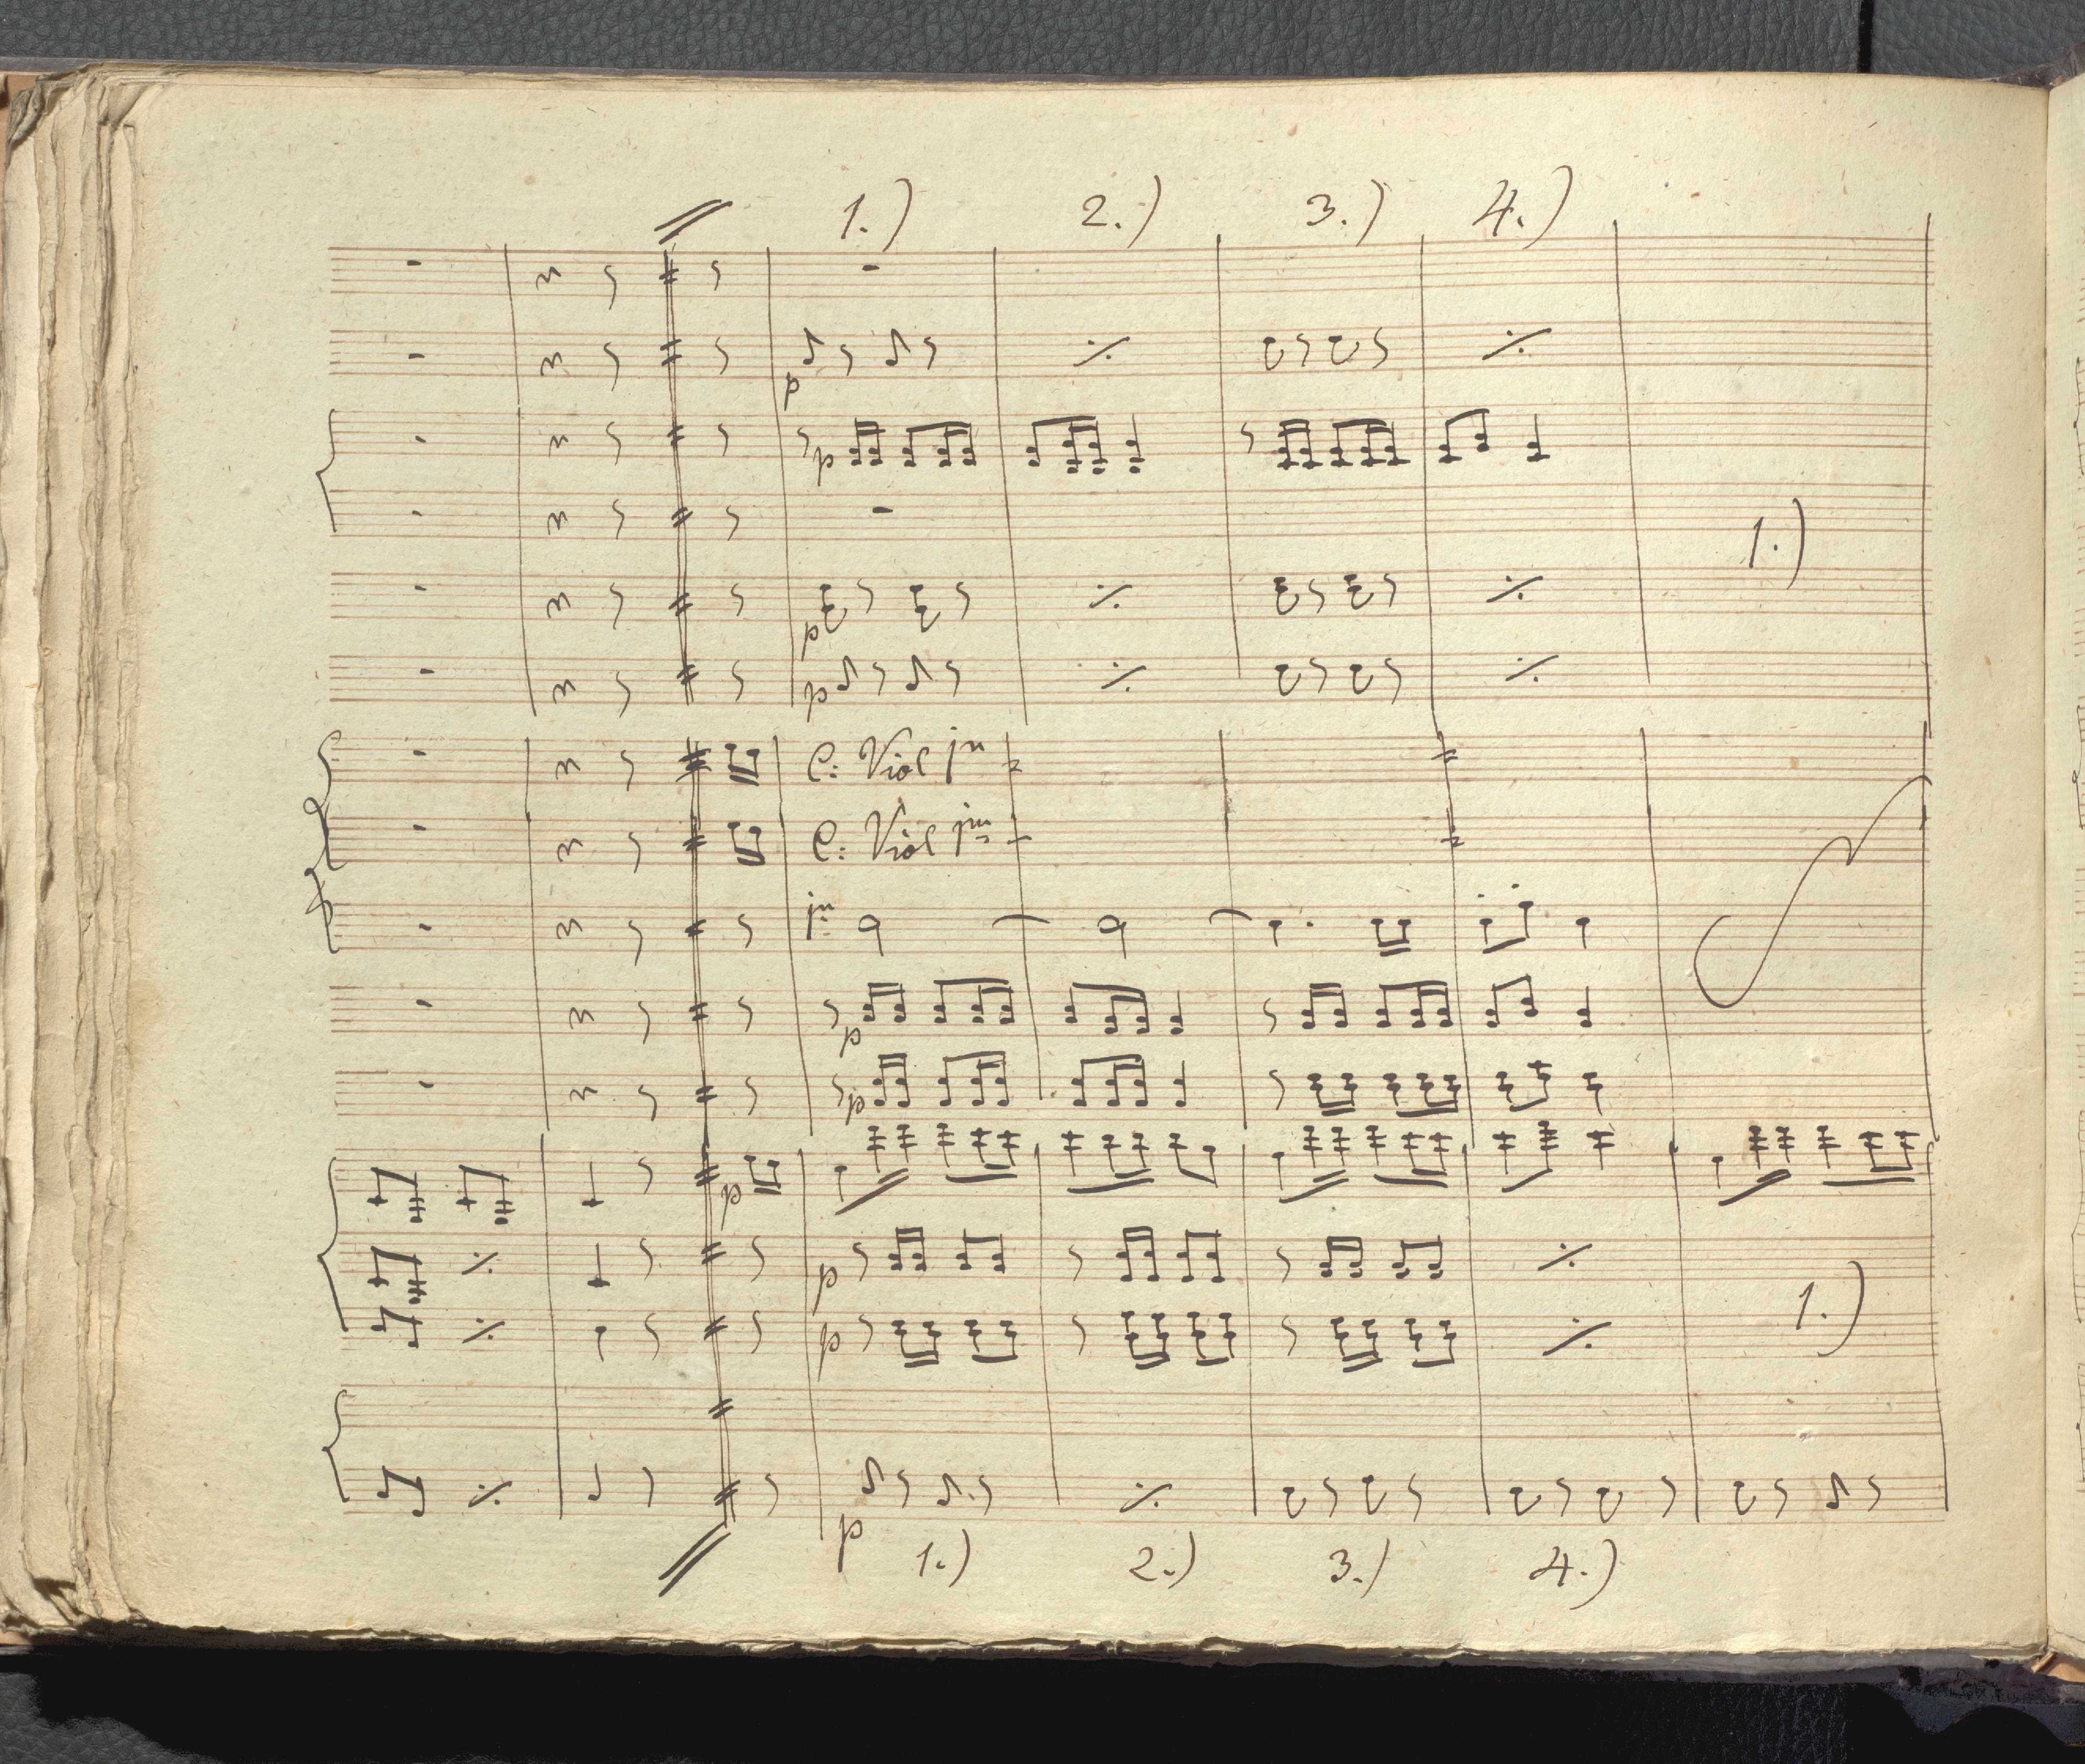 1.) 2.) 3.) 4.)
p
p
1.)
p
p
C: Viol jn
C: Viol jm
jn
p
p
p
p
1.)
p
p
1.) 2.) 3.) 4.)